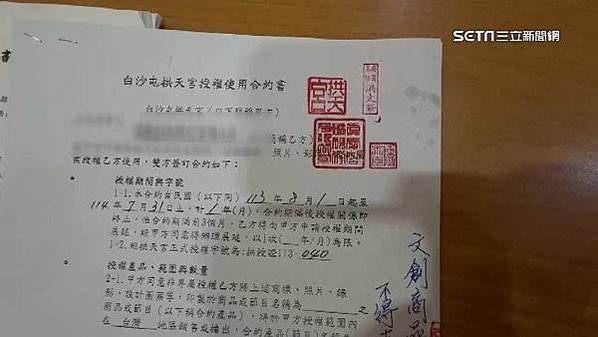 SETN三立新聞網
白沙屯拱天宮授權使用合約書
白沙屯拱天宮（以下
拱天宮
簡稱乙方）
照片、影
茲授權乙方使用，雙方簽訂合約如下：
授權期間與字號
1-1.本合約自民國（以下同）113年8月1日起至
114年7月31日止，計1年(月)，合約期滿後授權關係即
終止。但合約期滿前3個月，乙方得向甲方申請授權期間
展延，經甲方同意得辦理展延，以1次(__年/月)為限。
1-2.經拱天宮正式授權字號為：拱授證113-040
授權產品、範圍與數量
2-1.甲方同意非專屬授權乙方將上述商標、照片、錄
影、設計圖案等，印製於商品或節目名稱為
商品或節目（以下稱合約產品），得於甲方授權範圍內
在 台灣 地區銷售或播出，合約產品(節目)
文創商品
不得